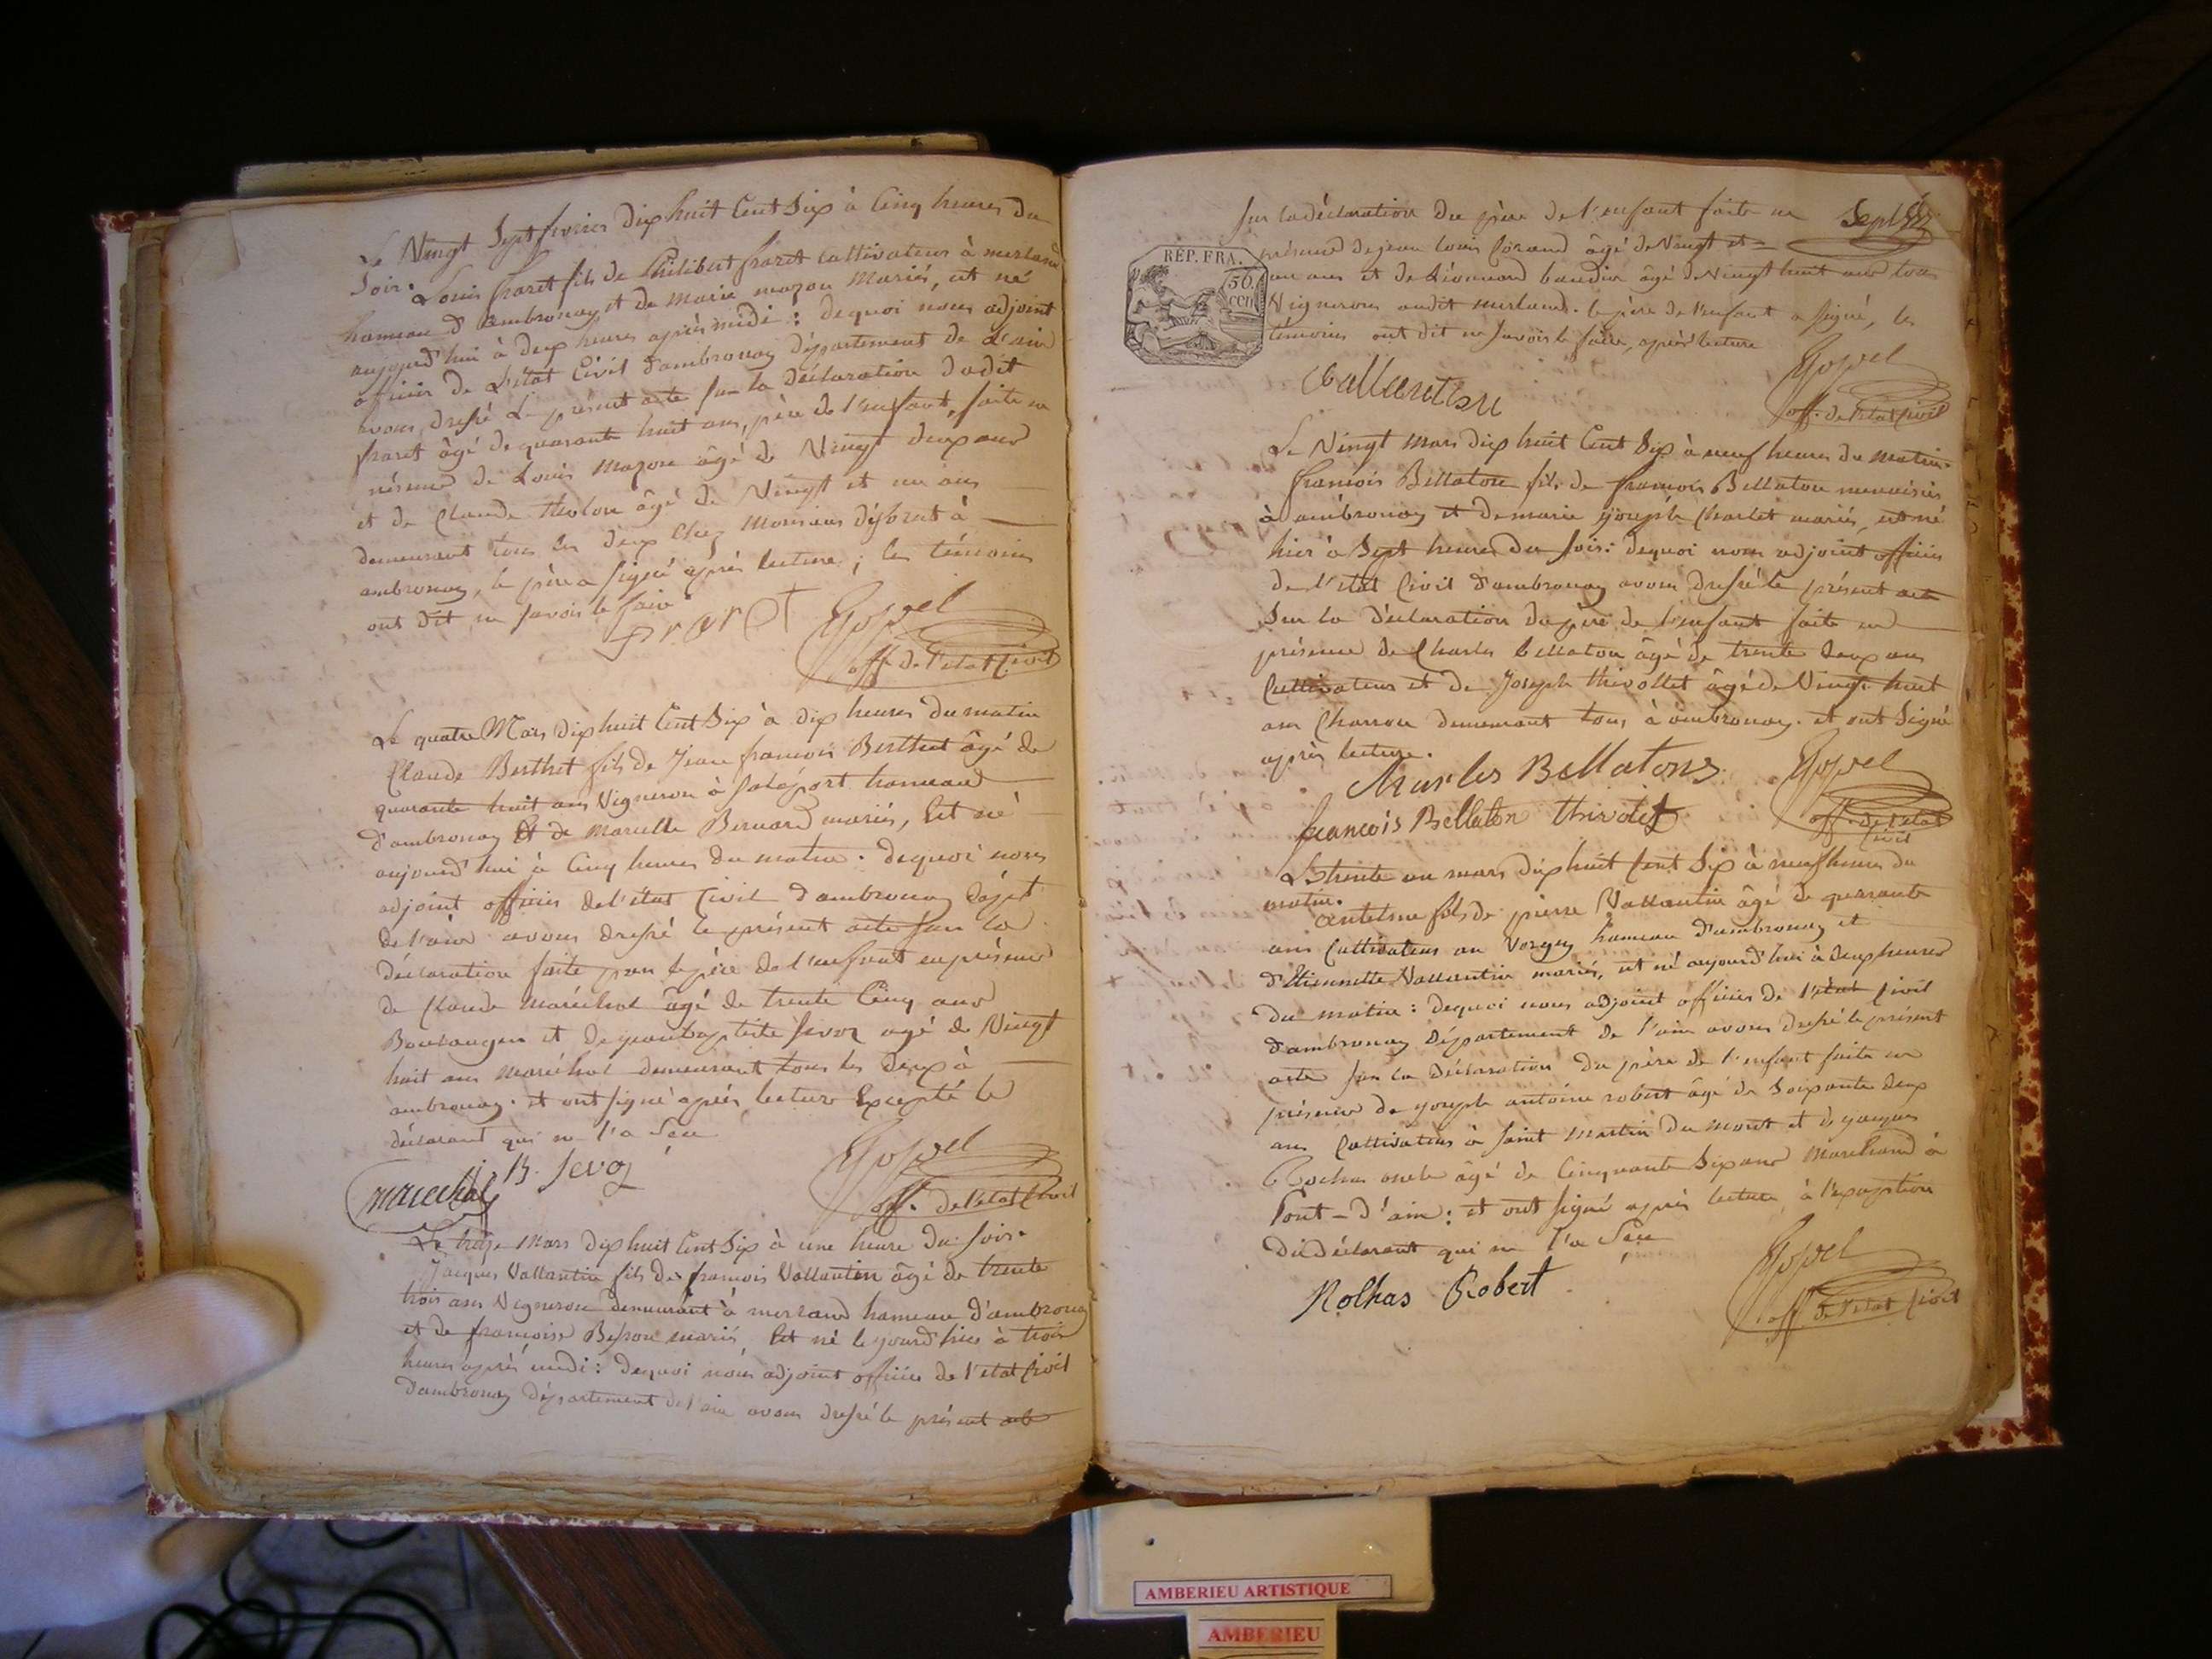 Le Vingt Sept fevrier dix huit Cent Six à Cinq heures du
Soir. Louis fraret fils de Philibert fraret cultivateur à merland
hameau d'ambronay et de marie mazon mariés, est né
aujourd'hui à deux heures après midi : dequoi nous adjoint
officier de L'état Civil d'ambronay département de L'ain
avons dressé Le présent acte sur la déclaration dudit
fraret âgé de quarante huit ans, père de l'enfant, faite en
présence de Louis mazon âgé de Vingt deux ans
et de Claude tholon âgé de Vingt et un ans
demeurant tous les deux chez Monsieur
à
ambronay, le père a signé après lecture ; les témoins
ont dit ne savoir le faire
fraret
off. de l'etat Civil
Le quatre Mars dix huit Cent Six à dix heures du matin
Claude Berthet fils de Jean françois Berthet âgé de
quarante huit ans Vigneron à hameau
d'ambronay Et de Marcelle Bernard mariés, Est né
aujourd'hui à Cinq heures du matin. dequoi nous
adjoint officier de l'état Civil d'ambronay dépt
de l'ain avons dressé le présent acte sur la
déclaration faite par le père de l'enfant en présence
de Claude maréchal âgé de trente Cinq ans
Boulanger et de jean baptiste Sevoz agé de Vingt
huit ans maréchal demeurant tous les deux à
ambronay. et ont signé après lecture Excepté le
déclarant qui ne l'a Seu
marechal B. Sevoz
off. de l'etat Civil
Le treize Mars dix huit Cent Six à une heure du soir.
Jacques Vallantin fils de françois Vallantin âgé de trente
trois ans Vigneron demeurant à merland hameau d'ambronay
et de françoise mariés Est né le jourd'hier à trois
heures après midi : dequoi nous adjoint officier de l'etat Civil
d'ambronay département de l'ain avons dressé le présent acte
sur la déclaration du père de l'enfant faite en Sept
présence de jean louis âgé de Vingt et
REP. FRA.
50
cen
un ans et de Léonnard baudin âgé de Vingt huit ans tous
Vignerons audit merland. le père de l'enfant a signé, les
témoins ont dit ne savoir le faire, après lecture
Vallantin
off. de l'etat Civil
Le Vingt Mars dix huit Cent Six à neuf heures du matin.
françois Bellaton fils de françois Bellaton menuisier
à ambronay et de marie joseph Charlet mariés, est né
hier à Sept heures du soir : dequoi nous adjoint officier
de l'état Civil d'ambronay avons dressé le présent acte
Sur la déclaration du père de l'enfant faite en
présence de Charles bellaton âgé de trente deux ans
Cultivateur et de Joseph thivollet âgé de Vingt huit
ans Charron demeurant tous à ambronay. et ont Signé
après lecture.
Charles Bellatons
francois Bellaton
off. de l'etat
Civil
Le trente un mars dix huit Cent Six à neuf heures du
matin.
antelme fils de pierre Vallantin âgé de quarante
ans Cultivateur au hameau d'ambronay et
d'Etiennette Vallantin mariés, est né aujourd'hui à deux heures
du matin : dequoi nous adjoint officier de l'état Civil
d'ambronay Département de l'ain avons dressé le présent
acte sur la Déclaration du père de l'enfant faite en
présence de joseph antoine robert âgé de Soixante deux
ans Cultivateur à saint martin du mont et de jacques
âgé de Cinquante Six ans Marchand à
Pont-d'ain : et ont signé après lecture à l'exception
du déclarant qui ne l'a Seu
Rolhas Robert
off. de l'etat Civil
AMBERIEU ARTISTIQUE
AMBERIEU